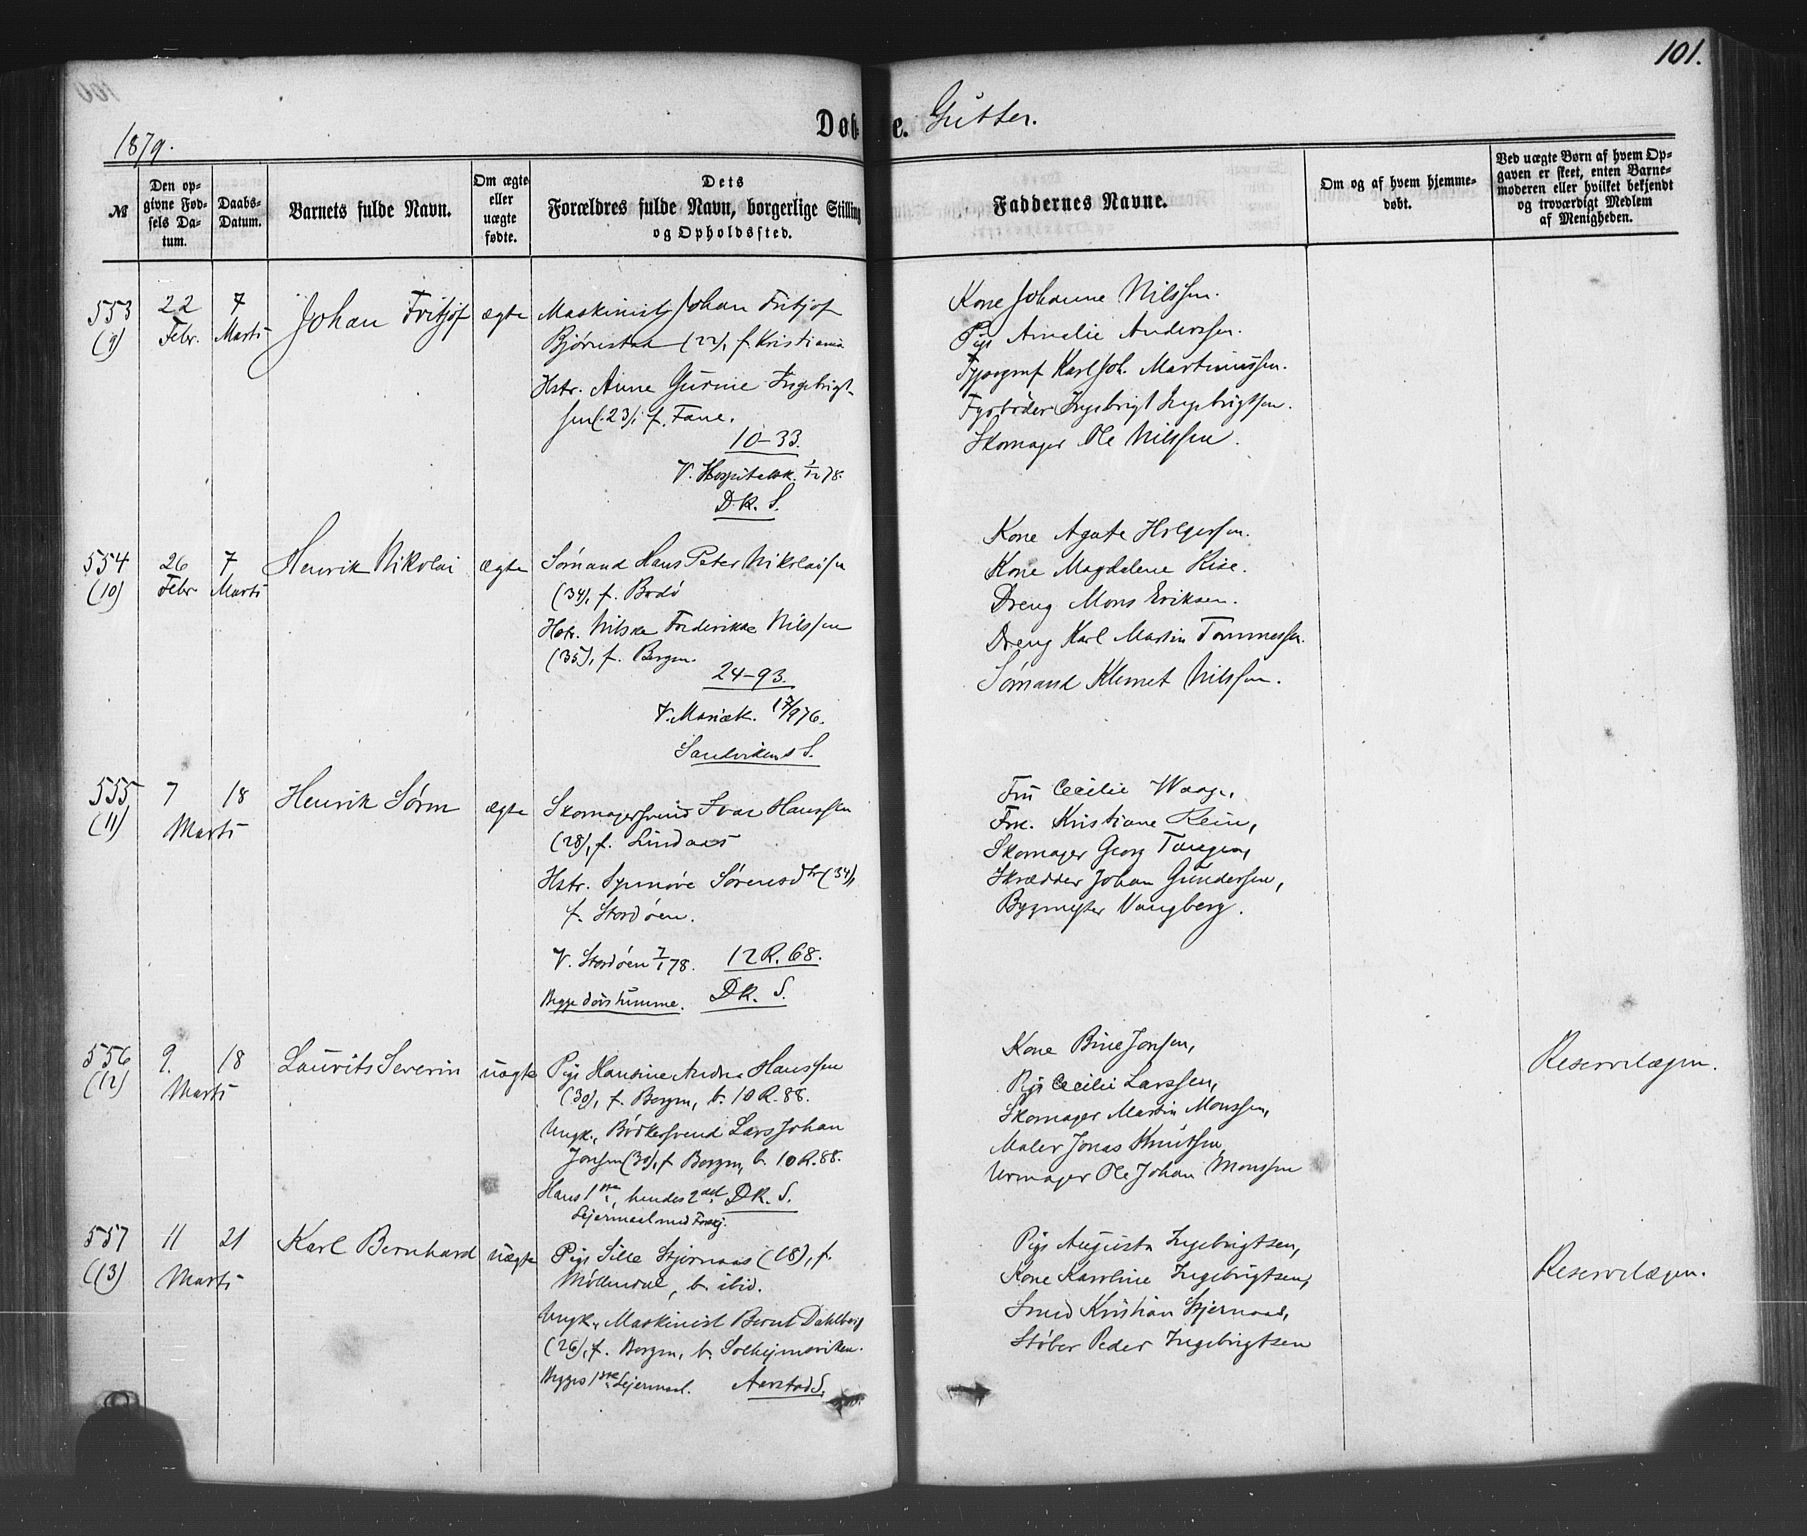 101.
Døb e. Gutter.
1879.
№
Den op-
givne Fød-
sels Da-
tum.
Daabs-
Datum.
Barnets fulde Navn.
Om ægte
eller
uægte
fødte.
Dets
Forældres fulde Navn, borgerlige Stilling
og Opholdssted.
Faddernes Navne.
Om og af hvem hjemme-
døbt.
Ved uægte Børn af hvem Op-
gaven er skeet, enten Barne-
moderen eller hvilket bekjendt
og troværdigt Medlem
af Menigheden.
553
(9)
22
Febr.
7
Marts
Johan Fritjof
ægte
Maskinist Johan Fritjof
Bjørnstad (22), f. Kristiania
Hstr. Anne Gurine Ingebrigt-
sen (23), f. Fane.
10-33.
V. Hospitalsk. 1/12 78.
D.K. S.
Kone Johanne Nilssen.
Pige Amelie Anderssen.
Typograf Karl Joh. Martinussen.
Fyrbøder Ingebrigt Ingebrigtsen.
Skomager Ole Nilssen.
554
(10)
26
Febr
7
Marts
Henrik Nikolai
ægte
Sømand Hans Peter Nikolaisen
(34), f. Bodø
Hstr. Nilske Frederikke Nilssen
(35), f. Bergen.
24-93.
V. Mariæk. 17/9 76.
Sandvikens S.
Kone Agate Holgerssen.
Kone Magdalene Rise.
Dreng Mons Eriksen.
Dreng Karl Martin Tommessen.
Sømand Klemet Nilssen.
555
(11)
7
18
Marts
Henrik Søren
ægte
Skomagersvend Ivar Hanssen
(28), f. Lindaas
Hstr. Synnøve Sørensdtr (34),
f. Stordøen.
V. Stordøen 7/1 78. 12 R. 68.
Begge døvstumme. DK. S.
Fru Cecilie Waage,
Frk. Kristiane Rein,
Skomager Georg Tangen,
Skrædder Johan Gundersen,
Bygmester Vangberg.
556
(12)
9.
18
Marts
Laurits Severin
uægte
Pige Hansine Andrea Hanssen
(30), f. Bergen, b. 10 R. 88.
Ungk., Bødkersvend Lars Johan
Jonsen (30), f. Bergen, b. 10 R. 88.
Hans 1ste, hendes 2det DK. S.
Lejermaal med Forskj.
Kone Bine Jonsen,
Pige Cecilie Larssen,
Skomager Martin Monssen,
Maler Jonas Knutsen
Urmager Ole Johan Monssen
Reservelægen.
557
(13)
11
21
Marts
Karl Bernhard
uægte
Pige Sille Stjernaas (18), f.
Møllendal, b. ibid.
Ungk., Maskinist Bernt Dahlberg
(26), f. Bergen, b. Solheimsviken.
Begges 1ste Lejermaal. Aarstad S.
Pige Augusta Ingebrigtsen,
Kone Karoline Ingebrigtsen,
Smed Kristian Stjernaas,
Støber Peder Ingebrigtsen
Reservelægen.